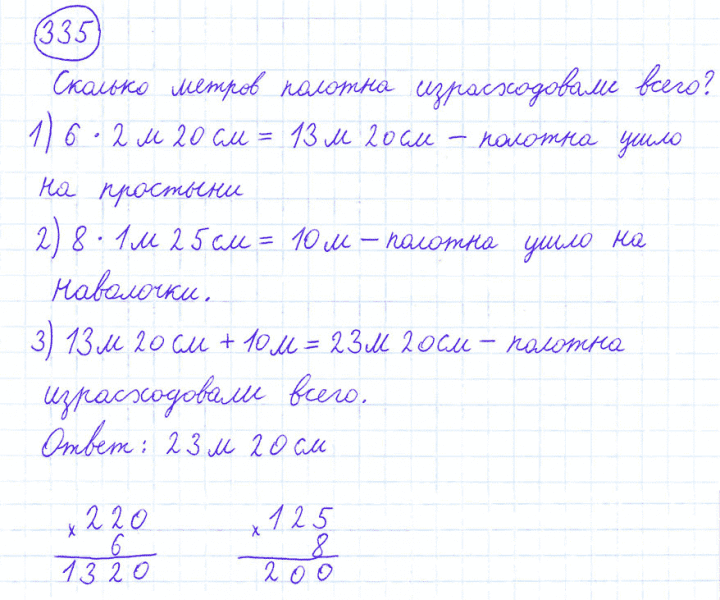 335
Сколько метров полотна израсходовали всего?
1) 6 · 2 м 20 см = 13 м 20 см – полотна ушло
на простыни
2) 8 · 1 м 25 см = 10 м – полотна ушло на
наволочки.
3) 13 м 20 см + 10 м = 23 м 20 см – полотна
израсходовали всего.
Ответ: 23 м 20 см
x 220 x 125
6 8
1320 200